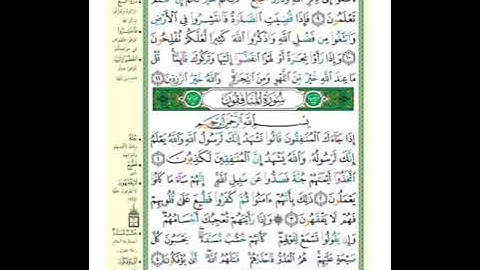 تَعْلَمُونَ ٩ فَإِذَا قُضِيَتِ الصَّلَوٰةُ فَانتَشِرُوا فِي الْأَرْضِ
وَابْتَغُوا مِن فَضْلِ اللَّهِ وَاذْكُرُوا اللَّهَ كَثِيرًا لَّعَلَّكُمْ تُفْلِحُونَ
١٠ وَإِذَا رَأَوْا تِجَارَةً أَوْ لَهْوًا انفَضُّوا إِلَيْهَا وَتَرَكُوكَ قَائِمًا ۚ قُلْ
مَا عِندَ اللَّهِ خَيْرٌ مِّنَ اللَّهْوِ وَمِنَ التِّجَارَةِ ۚ وَاللَّهُ خَيْرُ الرَّازِقِينَ ١١
سُورَةُ الْمُنَافِقُونَ
بِسْمِ اللَّهِ الرَّحْمَٰنِ الرَّحِيمِ
إِذَا جَاءَكَ الْمُنَافِقُونَ قَالُوا نَشْهَدُ إِنَّكَ لَرَسُولُ اللَّهِ ۗ وَاللَّهُ يَعْلَمُ
إِنَّكَ لَرَسُولُهُ وَاللَّهُ يَشْهَدُ إِنَّ الْمُنَافِقِينَ لَكَاذِبُونَ ١
اتَّخَذُوا أَيْمَانَهُمْ جُنَّةً فَصَدُّوا عَن سَبِيلِ اللَّهِ ۚ إِنَّهُمْ سَاءَ مَا كَانُوا
يَعْمَلُونَ ٢ ذَٰلِكَ بِأَنَّهُمْ آمَنُوا ثُمَّ كَفَرُوا فَطُبِعَ عَلَىٰ قُلُوبِهِمْ
فَهُمْ لَا يَفْقَهُونَ ٣ وَإِذَا رَأَيْتَهُمْ تُعْجِبُكَ أَجْسَامُهُمْ ۖ
وَإِن يَقُولُوا تَسْمَعْ لِقَوْلِهِمْ ۖ كَأَنَّهُمْ خُشُبٌ مُّسَنَّدَةٌ ۖ يَحْسَبُونَ كُلَّ
صَيْحَةٍ عَلَيْهِمْ ۚ هُمُ الْعَدُوُّ فَاحْذَرْهُمْ ۚ قَاتَلَهُمُ اللَّهُ ۖ أَنَّىٰ يُؤْفَكُونَ ٤